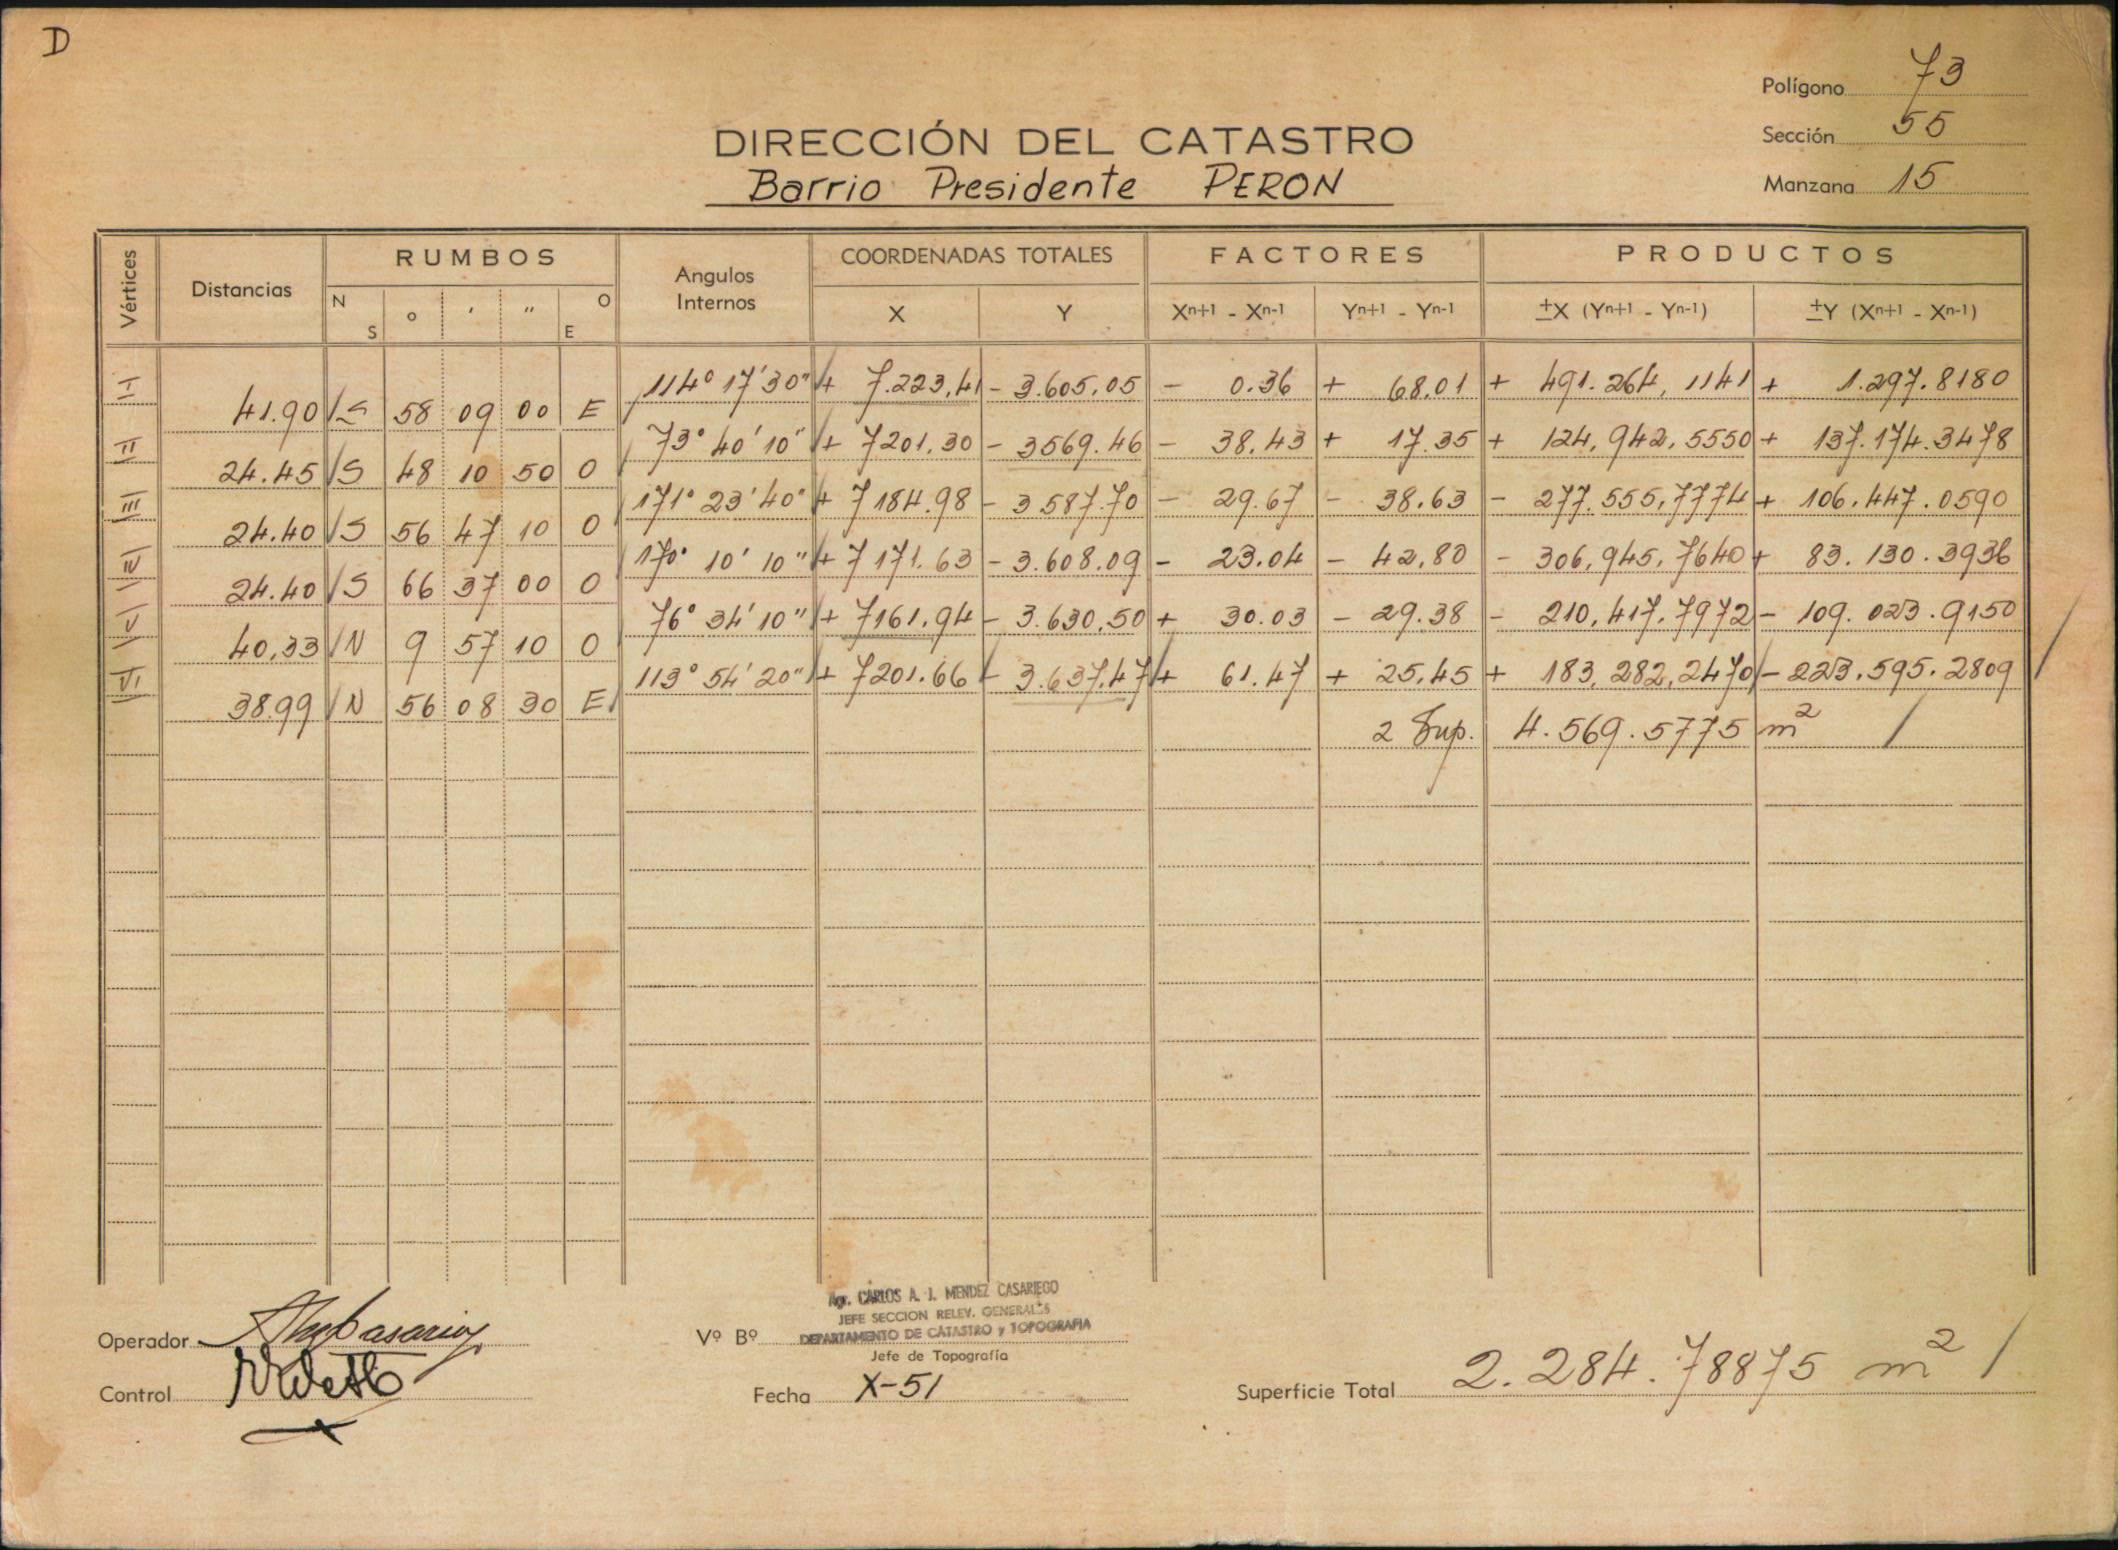 D
Polígono 73
Sección 55
Manzana 15
DIRECCIÓN DEL CATASTRO
Barrio Presidente PERON
Vértices Distancias RUMBOS Angulos Internos COORDENADAS TOTALES FACTORES PRODUCTOS
N S o ' " O E X Y Xn+1 - Xn-1 Yn+1 - Yn-1 ±X (Yn+1 - Yn-1) ±Y (Xn+1 - Xn-1)
I 114° 17' 30" + 7.223,41 - 3.605,05 - 0.36 + 68.01 + 491.264, 1141 + 1.297.8180
41.90 S 58 09 00 E
II 73° 40' 10" + 7201,30 - 3569.46 - 38,43 + 17.35 + 124,942,5550 + 137.174.3478
24.45 S 48 10 50 O
III 171° 23' 40" + 7184.98 - 3587.70 - 29.67 - 38.63 - 277.555,7774 + 106.447.0590
24.40 S 56 47 10 O
IV 170° 10' 10" + 7171.63 - 3.608.09 - 23.04 - 42,80 - 306,945,7640 + 83.130.3936
24.40 S 66 37 00 O
V 76° 34' 10" + 7161,94 - 3.630,50 + 30.03 - 29.38 - 210,417,7972 - 109.023.9150
40,33 N 9 57 10 O
VI 113° 54' 20" + 7201.66 - 3.637,47 + 61.47 + 25,45 + 183,282,2470 - 223.595.2809
38.99 N 56 08 30 E
2 Sup. 4.569.5775 m²
Agr. CARLOS A. J. MENDEZ CASARIEGO
JEFE SECCION RELEV. GENERALES
DEPARTAMENTO DE CATASTRO y TOPOGRAFIA
Operador Vº Bº
Jefe de Topografía
Control Fecha X-51 Superficie Total 2.284.78875 m²